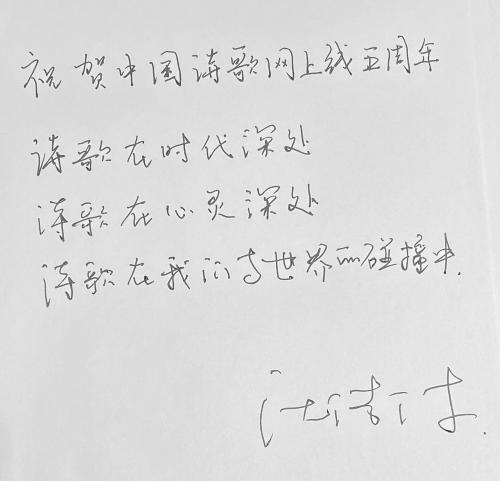 祝贺中国诗歌网上线五周年
诗歌在时代深处
诗歌在心灵深处
诗歌在我们与世界的碰撞中.